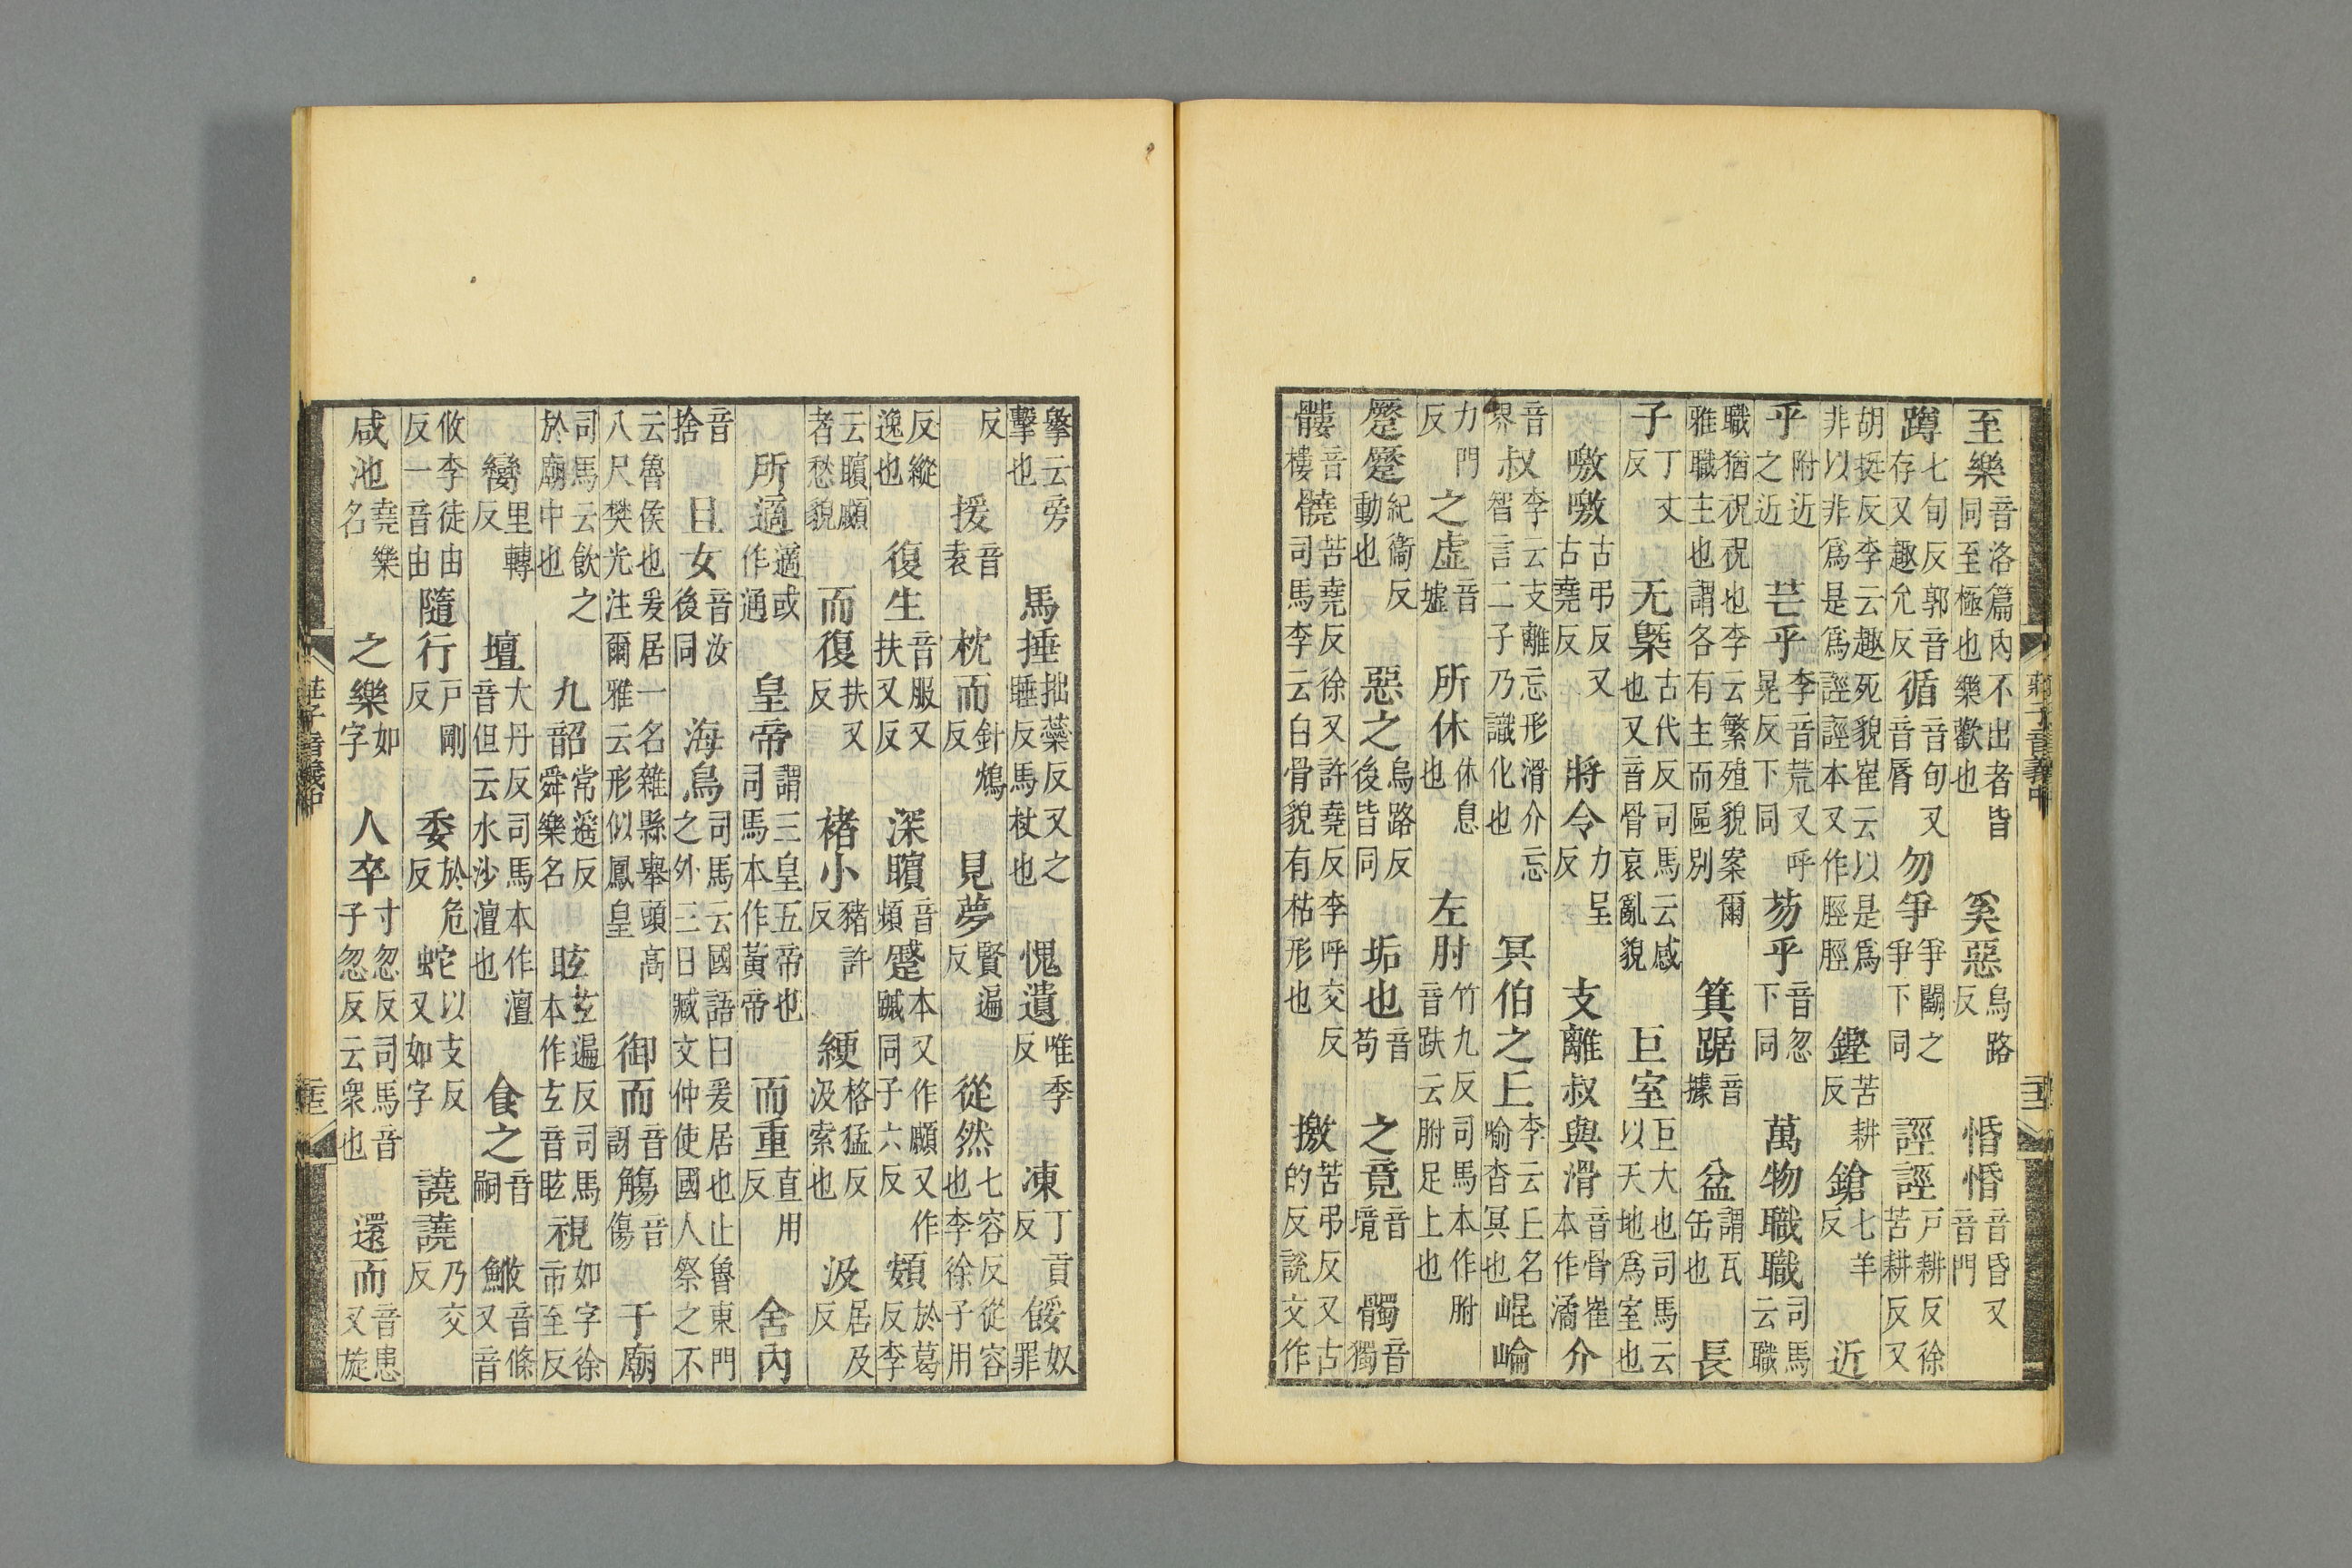 至樂音洛篇內不出者皆同至極也樂歡也奚惡烏路反惛惛音昏又音門
蹲七旬反郭音存又趣允反循音旬又音脣勿爭爭鬭之爭下同誙誙戶耕反徐苦耕反又
胡挺反李云趣死貌崔云以是爲非以非爲是爲誙誙本又作脛脛鏗苦耕反鎗七羊反近
乎附近之近芒乎李音荒又呼晃反下同芴乎音忽下同萬物職職司馬云職
職猶祝祝也李云繁殖貌案爾雅職主也謂各有主而區別箕踞音據盆謂瓦缶也長
子丁丈反无槩古代反司馬云感也又音骨哀亂貌巨室巨大也司馬云以天地爲室也
噭噭古弔反又古堯反將令力呈反支離叔與滑音骨崔本作潏介
音界叔李云支離忘形滑介忘智言二子乃識化也冥伯之丘李云丘名喻杳冥也崐崘
力門反之虛音墟所休休息也左肘竹九反司馬本作胕音趺云胕足上也
蹷蹷紀衞反動也惡之烏路反後皆同垢也音苟之竟音境髑音獨
髏音樓髐苦堯反徐又許堯反李呼交反司馬李云白骨貌有枯形也撽苦弔反又古的反說文作
莊子音義中
擎云旁擊也馬捶拙蘂反又之睡反馬杖也愧遺唯季反凍丁貢反餒奴罪
反援音袁枕而針鴆反見夢賢遍反從然七容反從容也李徐子用
反縱逸也復生音服又扶又反深矉音頻蹙本又作顣又作䠞同子六反頞於葛反李
云矉顣者愁貌而復扶又反褚小豬許反綆格猛反汲索也汲居及反
所適適或作通皇帝謂三皇五帝也司馬本作黃帝而重直用反舍內
音捨且女音汝後同海鳥司馬云國語曰爰居也止魯東門之外三日臧文仲使國人祭之不
云魯侯也爰居一名雜縣舉頭高八尺樊光注爾雅云形似鳳皇御而音訝觴音傷于廟
司馬云飲之於廟中也九韶常遥反舜樂名眩玄遍反司馬本作玄音眩視如字徐市至反
臠里轉反壇大丹反司馬本作澶音但云水沙澶也食之音嗣鰷音條又音
攸李徒由反一音由隨行戶剛反委於危反蛇以支反又如字譊譊乃交反
咸池堯樂名之樂如字人卒寸忽反司馬音子忽反云衆也還而音患又旋
莊子音義中